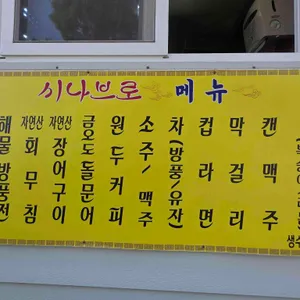 시나브로 메뉴
해물방풍전
자연산 회무침
자연산 장어구이
금오도돌문어
원두커피
소주/맥주
차(방풍/유자)
컵라면
막걸리
캔맥주
생수